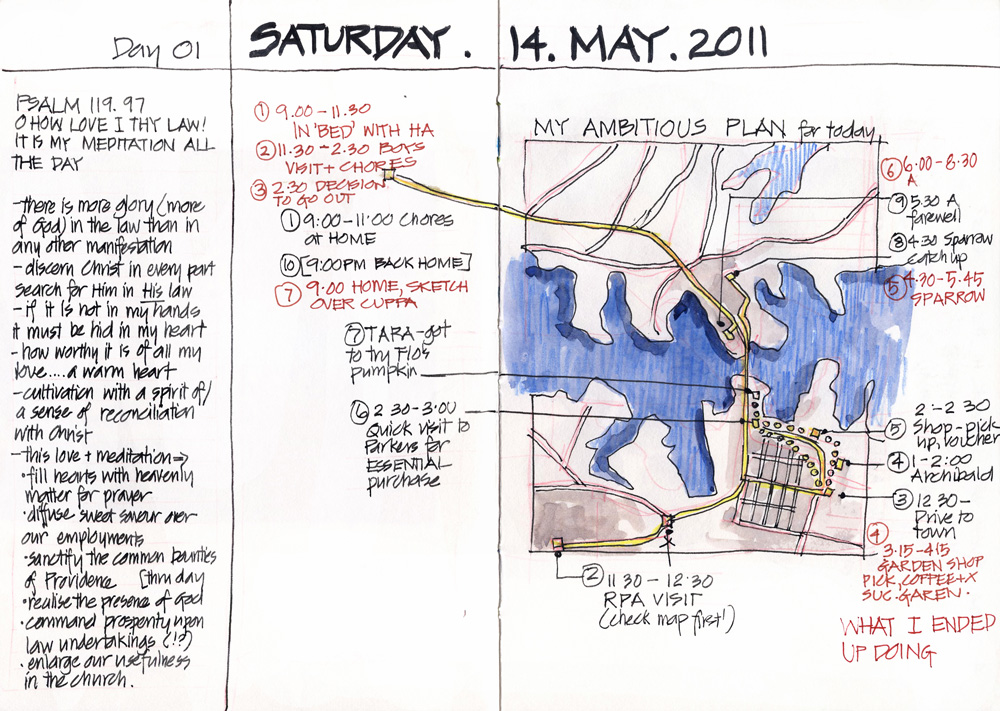 Day 01
SATURDAY. 14. MAY. 2011
PSALM 119.97
O HOW LOVE I THY LAW!
IT IS MY MEDITATION ALL
THE DAY
-there is more glory (more
of God) in the law than in
any other manifestation
- discern Christ in every part
search for Him in His law
- if it is not in my hands
it must be hid in my heart
- how worthy it is of all my
love.... a warm heart
- cultivation with a spirit of/
a sense of reconciliation
with Christ
- this love + meditation ⇒
• fill hearts with heavenly
matter for prayer
• diffuse sweet savour over
our employments
• sanctify the common bounties
of Providence [thru day
• realise the presence of God
• command prosperity upon
law undertakings (!?)
• enlarge our usefulness
in the church.
① 9.00 - 11.30
IN 'BED' WITH HA
② 11.30 - 2.30 BOYS
VISIT + CHORES
③ 2.30 DECISION
TO GO OUT
① 9:00 - 11:00 Chores
at HOME
⑩ [9:00PM BACK HOME]
⑦ 9:00 HOME, SKETCH
OVER CUPPA
⑦ TARA - got
to try Flo's
pumpkin
⑥ 2 30 - 3.00
Quick visit to
Parkers for
ESSENTIAL
purchase
MY AMBITIOUS PLAN for today
⑥ 6.00 - 8.30
A
⑨ 5.30 A
farewell
⑧ 4.30 Sparrow
catch up
⑤ 4.30 - 5.45
SPARROW
2 - 2 30
⑤ Shop - pick
up, voucher
④ 1 - 2:00
Archibald
③ 12.30 -
Drive to
town
④
3.15 - 4.15
GARDEN SHOP
PICK, COFFEE + X
SUC. GAREN.
② 11 30 - 12.30
RPA VISIT
(check map first!)
WHAT I ENDED
UP DOING